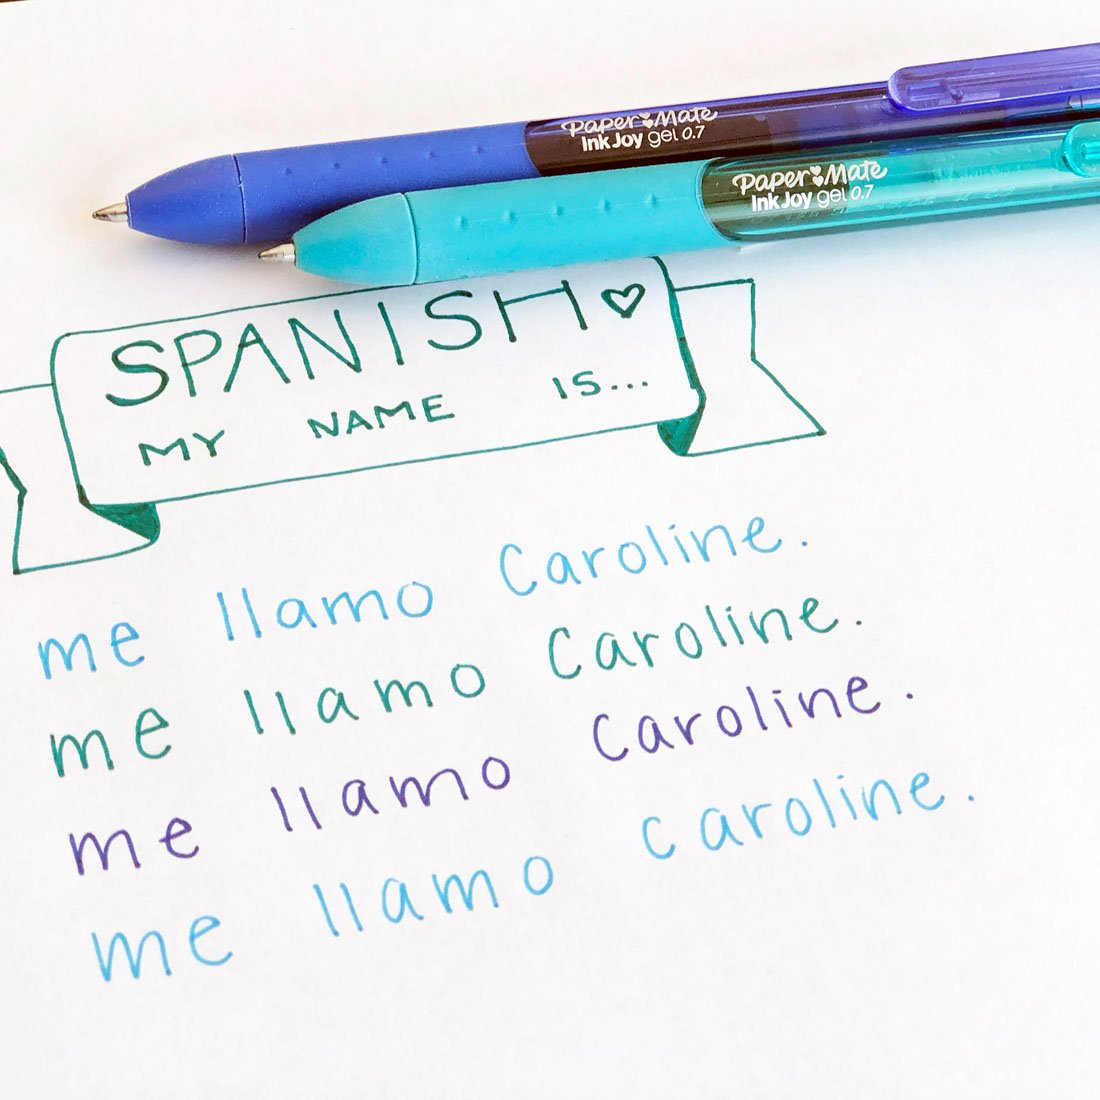 Paper Mate
InkJoy gel 0.7
Paper Mate
InkJoy gel 0.7
SPANISH
MY NAME IS...
me llamo Caroline.
me llamo Caroline.
me llamo Caroline.
me llamo caroline.